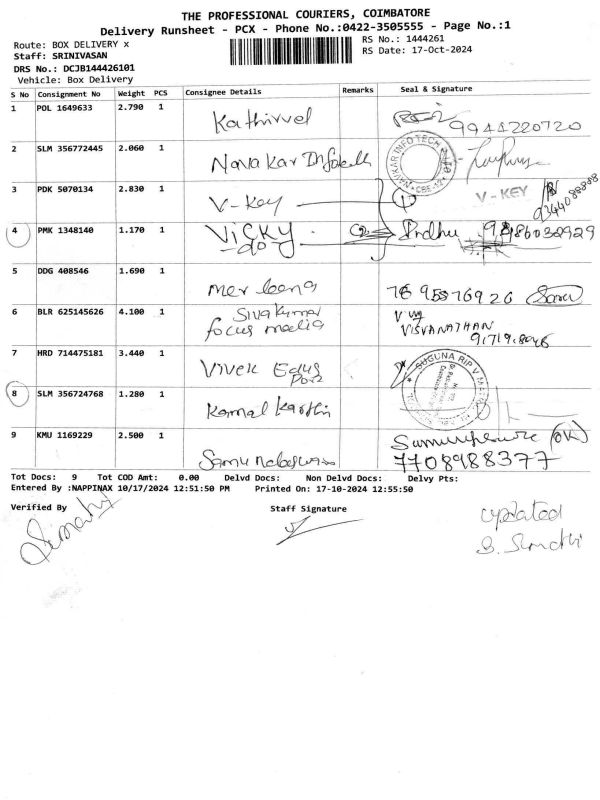 THE PROFESSIONAL COURIERS, COIMBATORE
Delivery Runsheet - PCX - Phone No.:0422-3505555 - Page No.:1
Route: BOX DELIVERY x
RS No.: 1444261
Staff: SRINIVASAN
RS Date: 17-Oct-2024
DRS No.: DCJB144426101
Vehicle: Box Delivery
S No Consignment No Weight PCS Consignee Details Remarks Seal & Signature
1 POL 1649633 2.790 1 Kathirvel 9944220720
2 SLM 356772445 2.060 1 Navakar Infotech
NAVKAR INFO TECH CBE-12
3 PDK 5070134 2.830 1 V-Key 1 V-KEY 9344088888
4 PMK 1348140 1.170 1 Vicky 2
-do-
5 DDG 408546 1.690 1
6 BLR 625145626 4.100 1 Sivakumar
focus media
VISVANATHAN
7 HRD 714475181 3.440 1 Vivek
SUGUNA RIP V MATRIC
8 SLM 356724768 1.280 1 Kamal Karthi
9 KMU 1169229 2.500 1 (OK)
7708988377
Tot Docs: 9 Tot COD Amt: 0.00 Delvd Docs: Non Delvd Docs: Delvy Pts:
Entered By :NAPPINAX 10/17/2024 12:51:50 PM Printed On: 17-10-2024 12:55:50
Verified By Staff Signature
updated